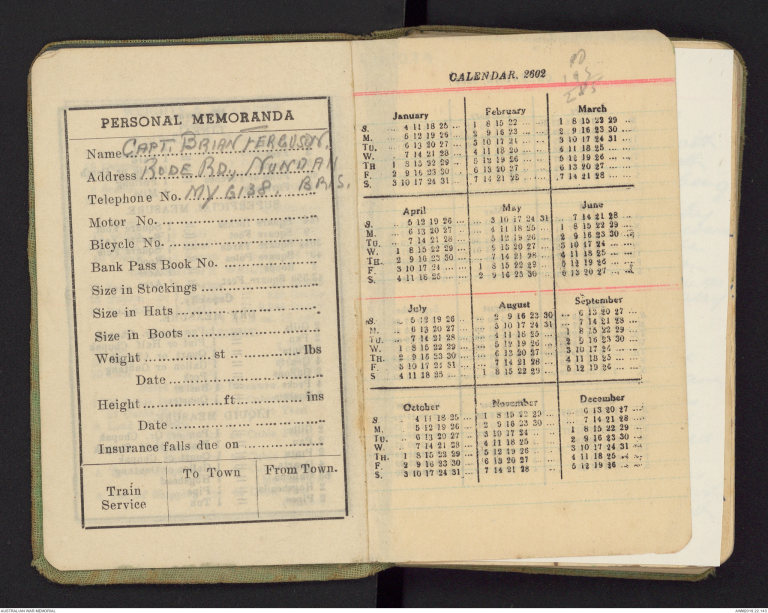 PERSONAL MEMORANDA
Name CAPT. BRIAN FERGUSON.
Address RODE RD, NUNDAH
BRIS.
Telephone No. MY 6138.
Motor No.
Bicycle No.
Bank Pass Book No.
Size in Stockings
Size in Hats
Size in Boots
Weight st lbs
Date
Height ft. ins
Date
Insurance falls due on
To Town From Town.
Train
Service
CALENDAR, 2602
January February March
S. ... 4 11 18 25 ... 1 8 15 22 ... 1 8 15 22 29 ...
M. ... 5 12 19 26 ... 2 9 16 23 ... 2 9 16 23 30 ...
TU. ... 6 13 20 27 ... 3 10 17 24 ... 3 10 17 24 31 ...
W. ... 7 14 21 28 ... 4 11 18 25 ... 4 11 18 25 ...
TH 1 8 15 22 29 ... 5 12 19 26 ... 5 12 19 26 ...
F. 2 9 16 23 30 ... 6 13 20 27 ... 6 13 20 27 ...
S. 3 10 17 24 31 ... 7 14 21 28 ... 7 14 21 28 ...
April May June
S. ... 5 12 19 26 ... ... 3 10 17 24 31 ... 7 14 21 28 ...
M. ... 6 13 20 27 ... ... 4 11 18 25 ... 1 8 15 22 29 ...
TU. ... 7 14 21 28 ... ... 5 12 19 26 ... 2 9 16 23 30 ...
W. 1 8 15 22 29 ... ... 6 13 20 27 ... 3 10 17 24 ...
TH. 2 9 16 23 30 ... ... 7 14 21 28 ... 4 11 18 25 ...
F. 3 10 17 24 ... 1 8 15 22 29 ... 5 12 19 26 ...
S. 4 11 18 25 ... 2 9 16 23 30 ... 6 13 20 27 ...
July August September
S. ... 5 12 19 26 ... ... 2 9 16 23 30 ... 6 13 20 27 ...
M. ... 6 13 20 27 ... ... 3 10 17 24 31 ... 7 14 21 28 ...
TU. ... 7 14 21 28 ... ... 4 11 18 25 ... 1 8 15 22 29 ...
W. 1 8 15 22 29 ... ... 5 12 19 26 ... 2 9 16 23 30 ...
TH. 2 9 16 23 30 ... ... 6 13 20 27 ... 3 10 17 24 ...
F. 3 10 17 24 31 ... ... 7 14 21 28 ... 4 11 18 25 ...
S 4 11 18 25 ... 1 8 15 22 29 ... 5 12 19 26 ...
October November December
S. ... 4 11 18 25 ... 1 8 15 22 29 ... ... 6 13 20 27 ...
M. ... 5 12 19 26 ... 2 9 16 23 30 ... ... 7 14 21 28 ...
TU. ... 6 13 20 27 ... 3 10 17 24 ... 1 8 15 22 29 ...
W. ... 7 14 21 28 ... 4 11 18 25 ... 2 9 16 23 30 ...
TH. 1 8 15 22 29 ... 5 12 19 26 ... 3 10 17 24 31 ...
F. 2 9 16 23 30 ... 6 13 20 27 ... 4 11 18 25 ...
S. 3 10 17 24 31 ... 7 14 21 28 ... 5 12 19 26 ...
AUSTRALIAN WAR MEMORIAL